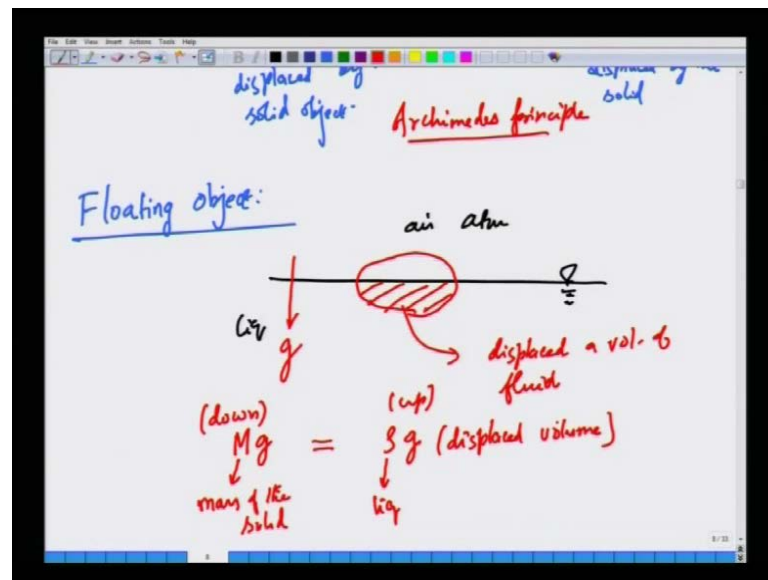 File Edit View Insert Actions Tools Help
displaced by
solid object.
displaced by the
solid
Archimedes principle
Floating object:
air atm
liq
g
displaced a vol. of
fluid
(down) (up)
Mg = ρg (displaced volume)
mass of the
solid
liq